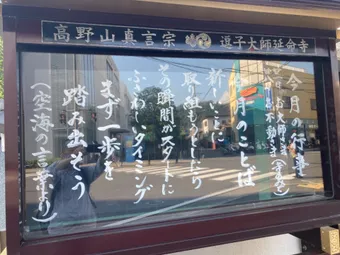 高野山真言宗 逗子大師延命寺
今月の行事
今月のことば
新しいことに
取り組もうとしたら
その瞬間がスタートに
ふさわしいタイミング
まず一歩を
踏み出そう
(空海の言葉より)